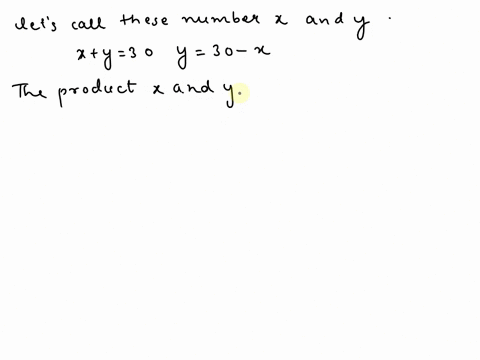 let's call these number x and y.
x+y=30 y=30-x
The product x and y.